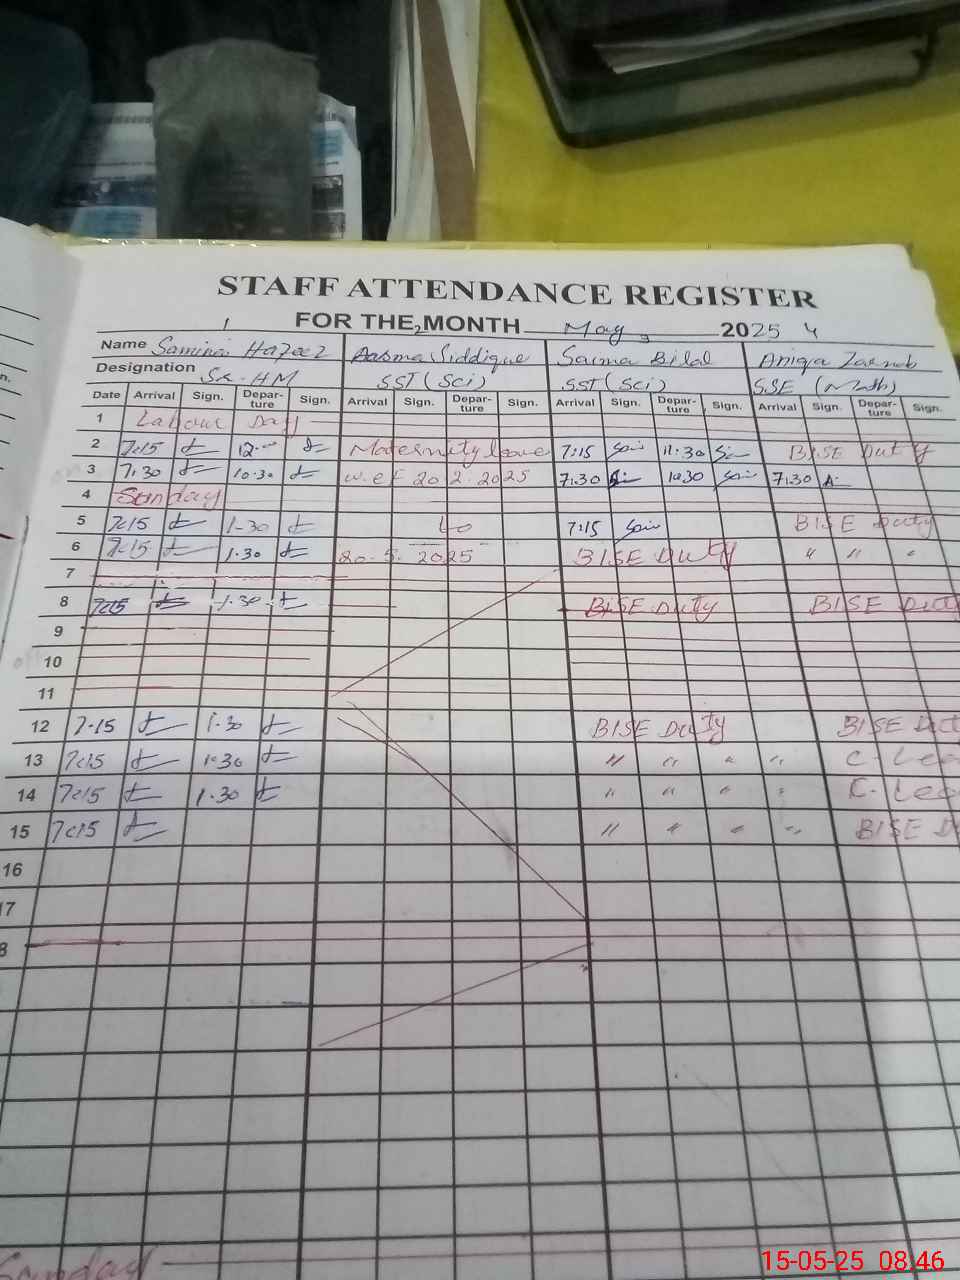 STAFF ATTENDANCE REGISTER
FOR THE MONTH May 2025
1 2 3 4
Name Samina Hafeez Aasma Siddique Saima Bilal Aniqa Zainab
Designation Sr. HM SST (Sci) SST (Sci) SSE (Math)
Date Arrival Sign. Depar-ture Sign. Arrival Sign. Depar-ture Sign. Arrival Sign. Depar-ture Sign. Arrival Sign. Depar-ture Sign.
1 Labour Day
2 7:15 12.00 Maternity leave 7:15 11:30 BISE Duty
3 7.30 10.30 w.e.f 20 2.2025 7:30 10:30 7:30
4 Sunday
5 7:15 1-30 to 7:15 BISE Duty
6 7:15 1.30 20.5.2025 BISE Duty " " "
7
8 7:15 1.30 BISE Duty BISE Duty
9
10
11
12 7.15 1.30 BISE Duty BISE Dut
13 7:15 1.30 " " " " C. Lea
14 7:15 1.30 " " " " C. Lea
15 7:15 " " " " BISE D
16
17
8
Sunday
15-05-25 08:46